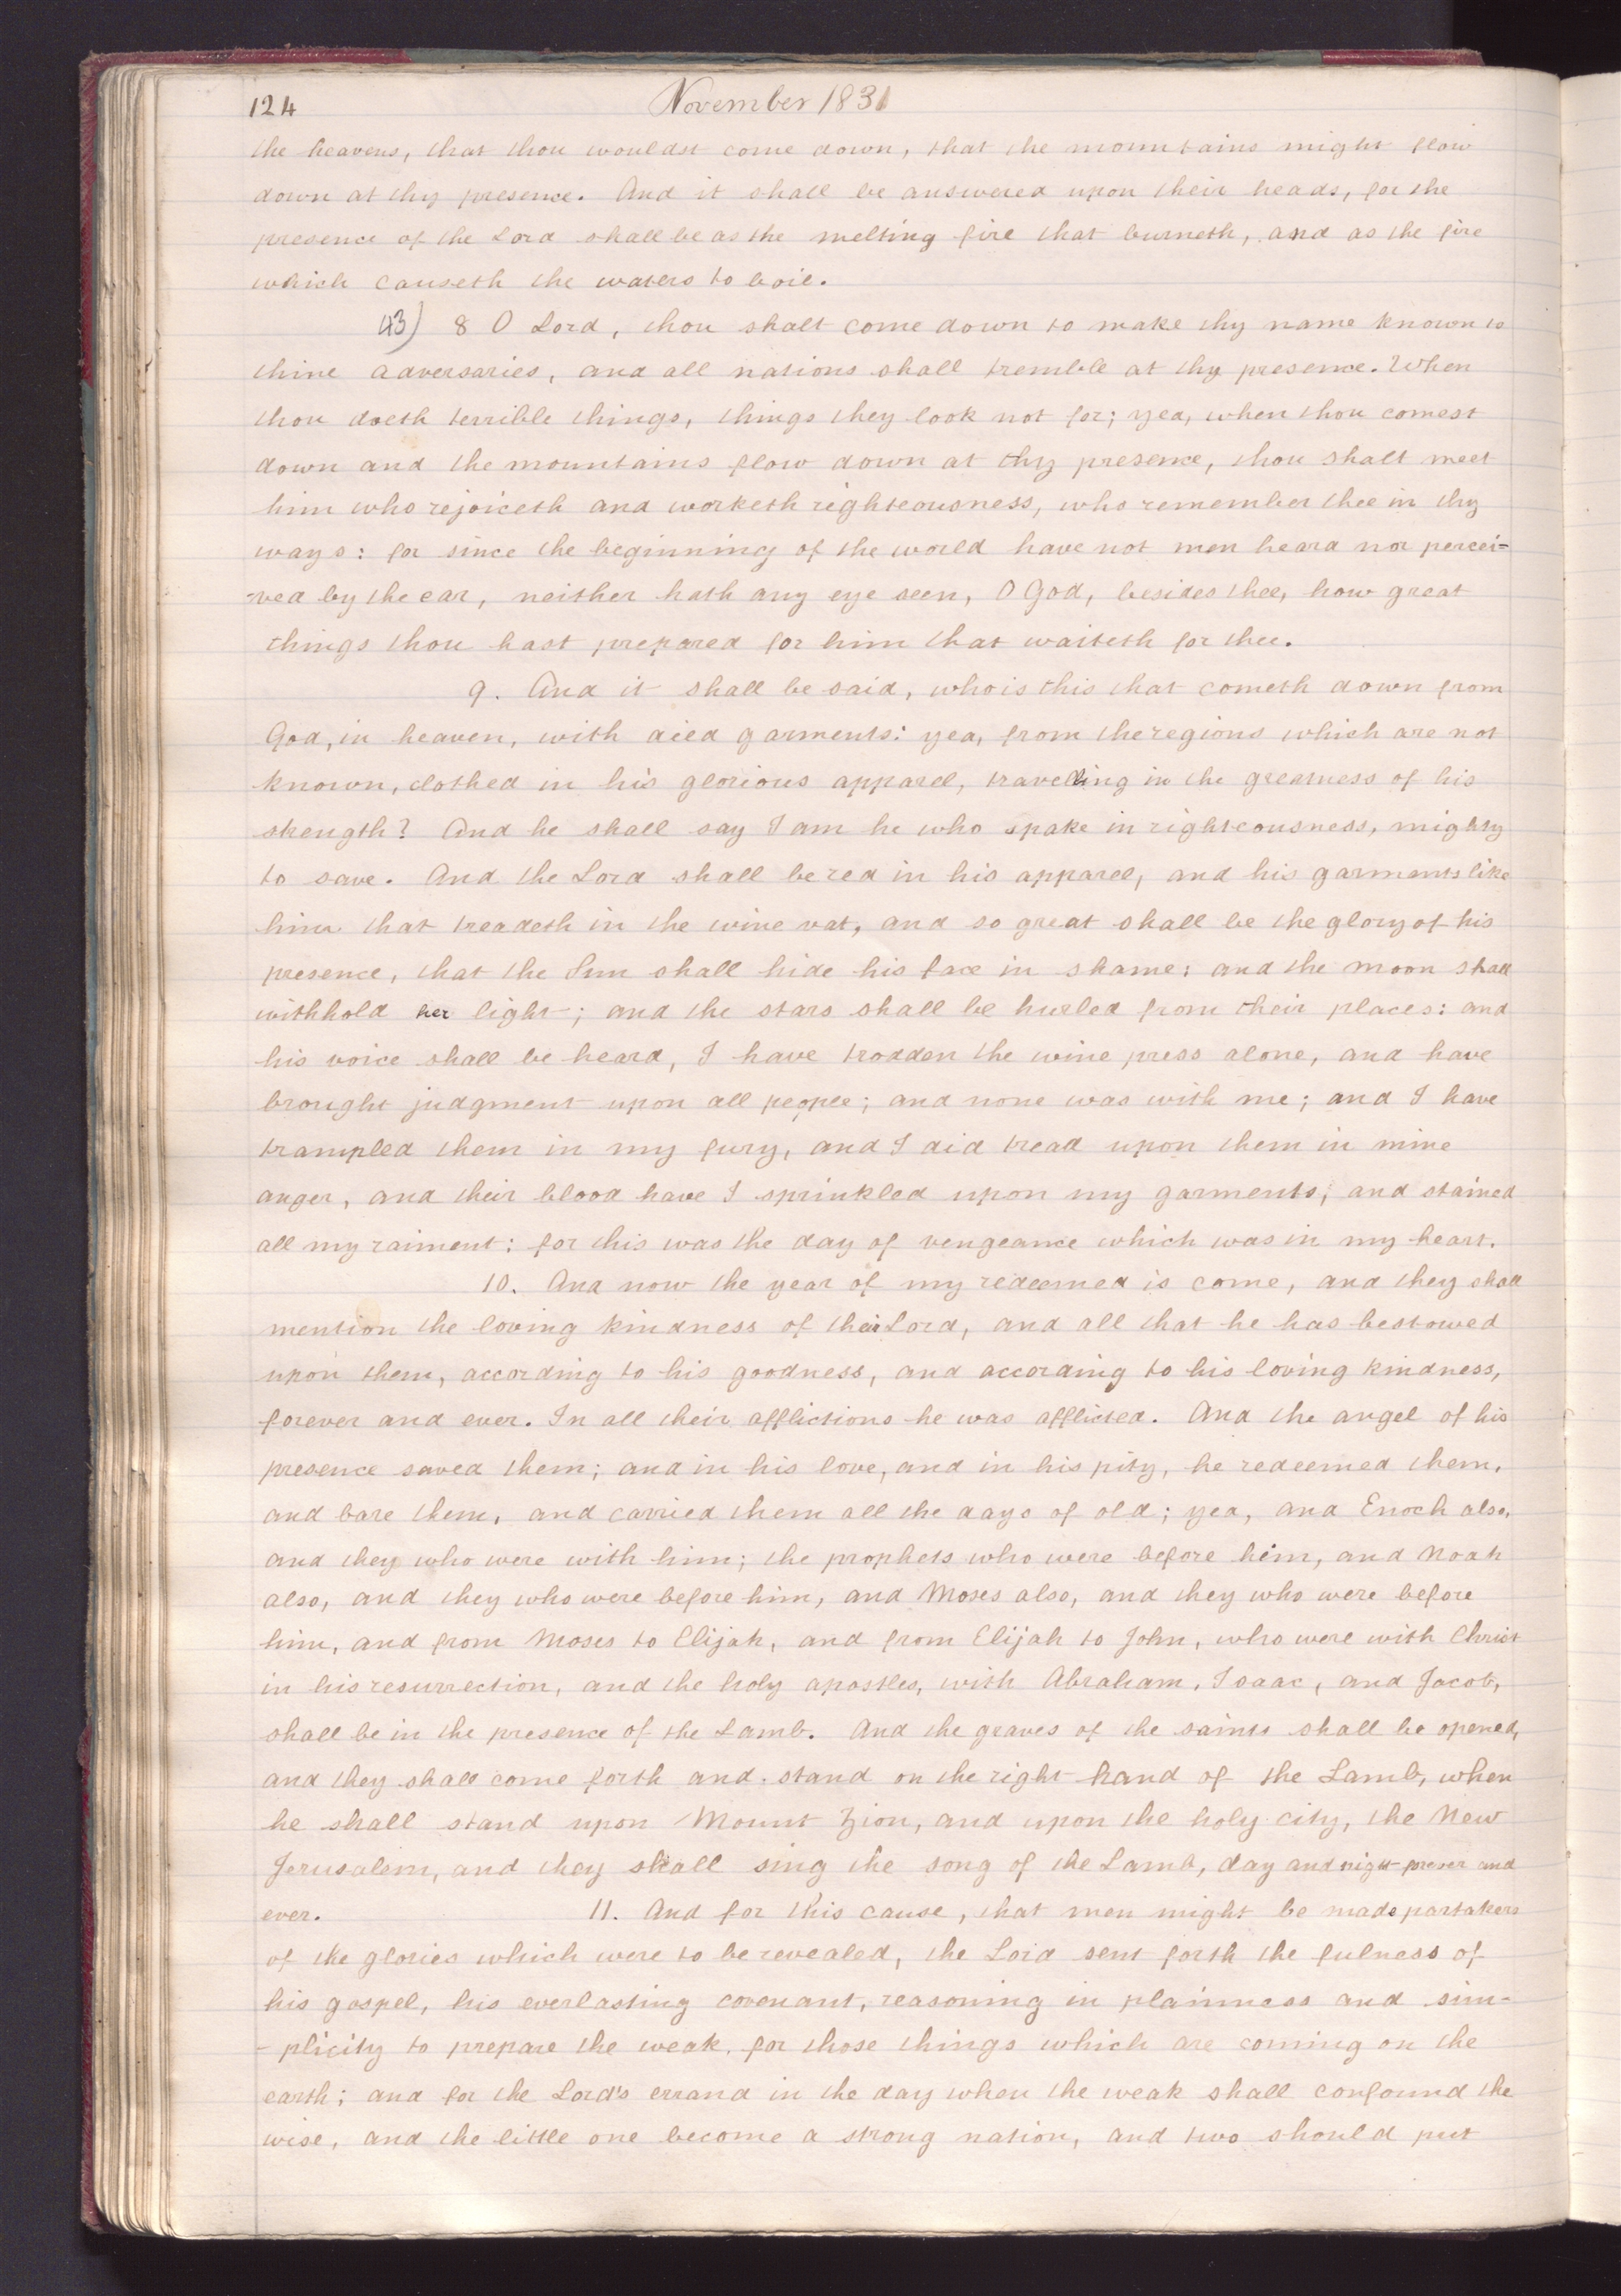 124
November 1831
the heavens, that thou wouldst come down, that the mountains might flow
down at thy presence. And it shall be answered upon their heads, for the
presence of the Lord shall be as the melting fire that burneth, and as the fire
which causeth the waters to boil.
43) 8 O Lord, thou shalt come down to make thy name known to
thine adversaries, and all nations shall tremble at thy presence. When
thou doeth terrible things, things they look not for; yea, when thou comest
down and the mountains flow down at thy presence, thou shalt meet
him who rejoiceth and worketh righteousness, who remember thee in thy
ways: for since the beginning of the world have not men heard nor percei=
-ved by the ear, neither hath any eye seen, O God, besides thee, how great
things thou hast prepared for him that waiteth for thee.
9. And it shall be said, who is this that cometh down from
God, in heaven, with died garments: yea, from the regions which are not
known, clothed in his glorious apparel, travelling in the greatness of his
strength? And he shall say I am he who spake in righteousness, mighty
to save. And the Lord shall be red in his apparel, and his garments like
him that treadeth in the wine vat, and so great shall be the glory of his
presence, that the Sun shall hide his face in shame: and the moon shall
withhold her light; and the stars shall be hurled from their places: and
his voice shall be heard, I have trodden the wine press alone, and have
brought judgment upon all people; and none was with me; and I have
trampled them in my fury, and I did tread upon them in mine
anger, and their blood have I sprinkled upon my garments, and stained
all my raiment: for this was the day of vengeance which was in my heart.
10. And now the year of my redeemed is come, and they shall
mention the loving kindness of their Lord, and all that he has bestowed
upon them, according to his goodness, and according to his loving kindness,
forever and ever. In all their afflictions he was afflicted. And the angel of his
presence saved them; and in his love, and in his pity, he redeemed them,
and bare them, and carried them all the days of old; yea, and Enoch also,
and they who were with him; the prophets who were before him, and Noah
also, and they who were before him, and Moses also, and they who were before
him, and from Moses to Elijah, and from Elijah to John, who were with Christ
in his resurrection, and the holy apostles, with Abraham, Isaac, and Jacob,
shall be in the presence of the Lamb. And the graves of the saints shall be opened,
and they shall come forth and stand on the right hand of the Lamb, when
he shall stand upon Mount Zion, and upon the holy city, the New
Jerusalem, and they shall sing the song of the Lamb, day and night forever and
ever. 11. And for this cause, that men might be made partakers
of the glories which were to be revealed, the Lord sent forth the fulness of
his gospel, his everlasting covenant, reasoning in plainness and sim-
-plicity to prepare the weak, for those things which are coming on the
earth; and for the Lord's errand in the day when the weak shall confound the
wise, and the little one become a strong nation, and two should put